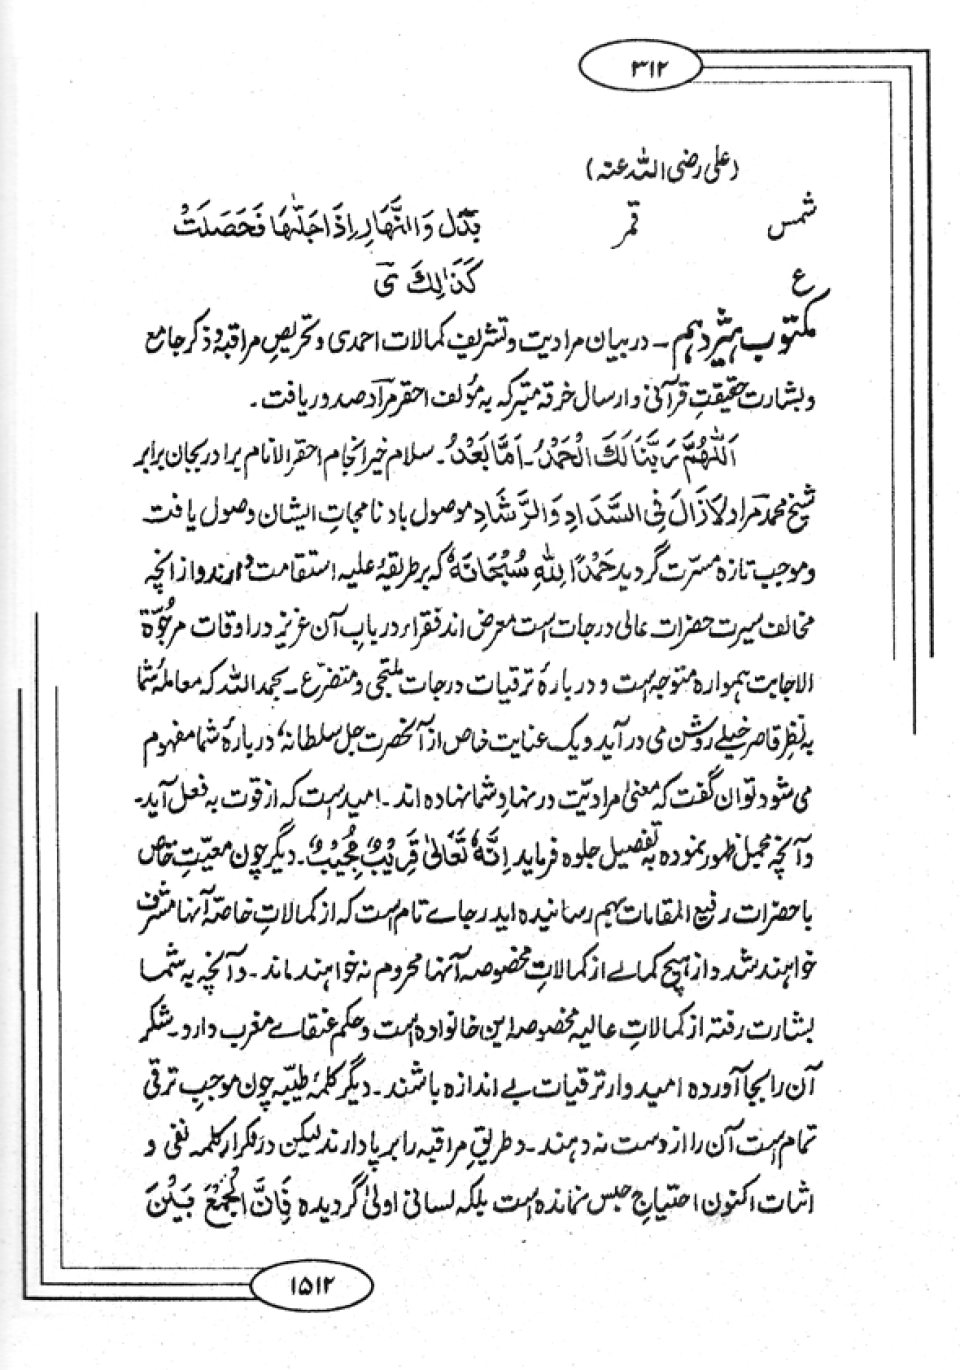 ۳۱۲
(علی رضی اللہ عنہ)
شمس قمر بَدَّل وَالنَّهَارِ اِذَا جَلّٰهَا فَحَصَلَتْ
ع كَذَالِكَ ىٰ
مکتوب ہثیردہم ـ در بیان مرادیت و تشریف کمالات احمدی و تحریصِ مراقبۂ و ذکر جامع
و بشارت حقیقتِ قرآنی و ارسال خرقہ متبرکہ بہ مؤلف احقر مراد صدور یافت ـ
اَللّٰهُمَّ رَبَّنَا لَكَ الْحَمْدُ ـ اَمَّا بَعْدُ ـ سلام خیر انجام احقر الانام برادر بجان برابر
شیخ محمد مراد لَازَالَ فِی السَّدَادِ وَالرَّشَادِ موصول باد نامجاتِ ایشان وصول یافت
و موجب تازہ مسرّت گردید حَمْدًا لِلّٰهِ سُبْحَانَهٗ کہ بر طریقۂ علیہ استقامت دارند و از انچہ
مخالف سیرت حضرات عالی درجات است معرض اند فقراء در بابِ آن عزیز در اوقات مرجُوّة
الاجابت ہموارہ متوجہ است و دربارۂ ترقیات درجات ملتجی و متضرّع ـ بحمد اللہ کہ معاملۂ شما
بہ نظرِ قاصر خیلے روشن می در آید و یک عنایت خاص از آنحضرت جل سلطانہٗ دربارۂ شما مفہوم
می شود توان گفت کہ معنیٰ مرادیّت در نہادِ شما نہادہ اند ـ امید است کہ از قوت بہ فعل آید ـ
و آنچہ مجمل ظہور نمودہ بہ تفصیل جلوہ فرماید اِنَّهٗ تَعَالٰی قَرِیْبٌ مُجِیْبٌ ـ دیگر چون معیّتِ خاص
با حضرات رفیع المقامات بہم رسانیدہ اید رجاے تام است کہ از کمالاتِ خاصّہ آنہا مشرف
خواہند شد و از ہیچ کمالے از کمالاتِ مخصوصہ آنہا محروم نہ خواہند ماند ـ و آنچہ بہ شما
بشارت رفتہ از کمالاتِ عالیہ مخصوصہ این خانوادہ است و حکم عنقاے مغرب دارد ـ شکر
آن را بجا آوردہ امیدوار ترقیات بے اندازہ باشند ـ دیگر کلمۂ طیّبہ چون موجبِ ترقی
تمام است آن را از دست نہ دہند ـ و طریقِ مراقبہ را برپا دارند لیکن در تکرار کلمہ نفی و
اثبات اکنون احتیاجِ حبس نماندہ است بلکہ لسانی اولیٰ گردیدہ فَاِنَّ الْجَمْعَ بَیْنَ
۱۵۱۲